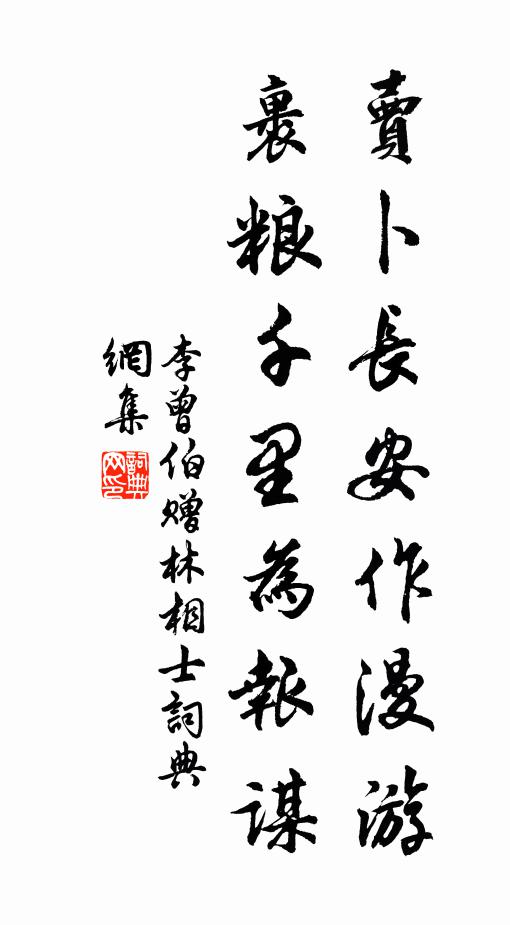 賣卜長安作漫游
裹粮千里為報謀
李曾伯赠林相士詞典
網集
詞典網印